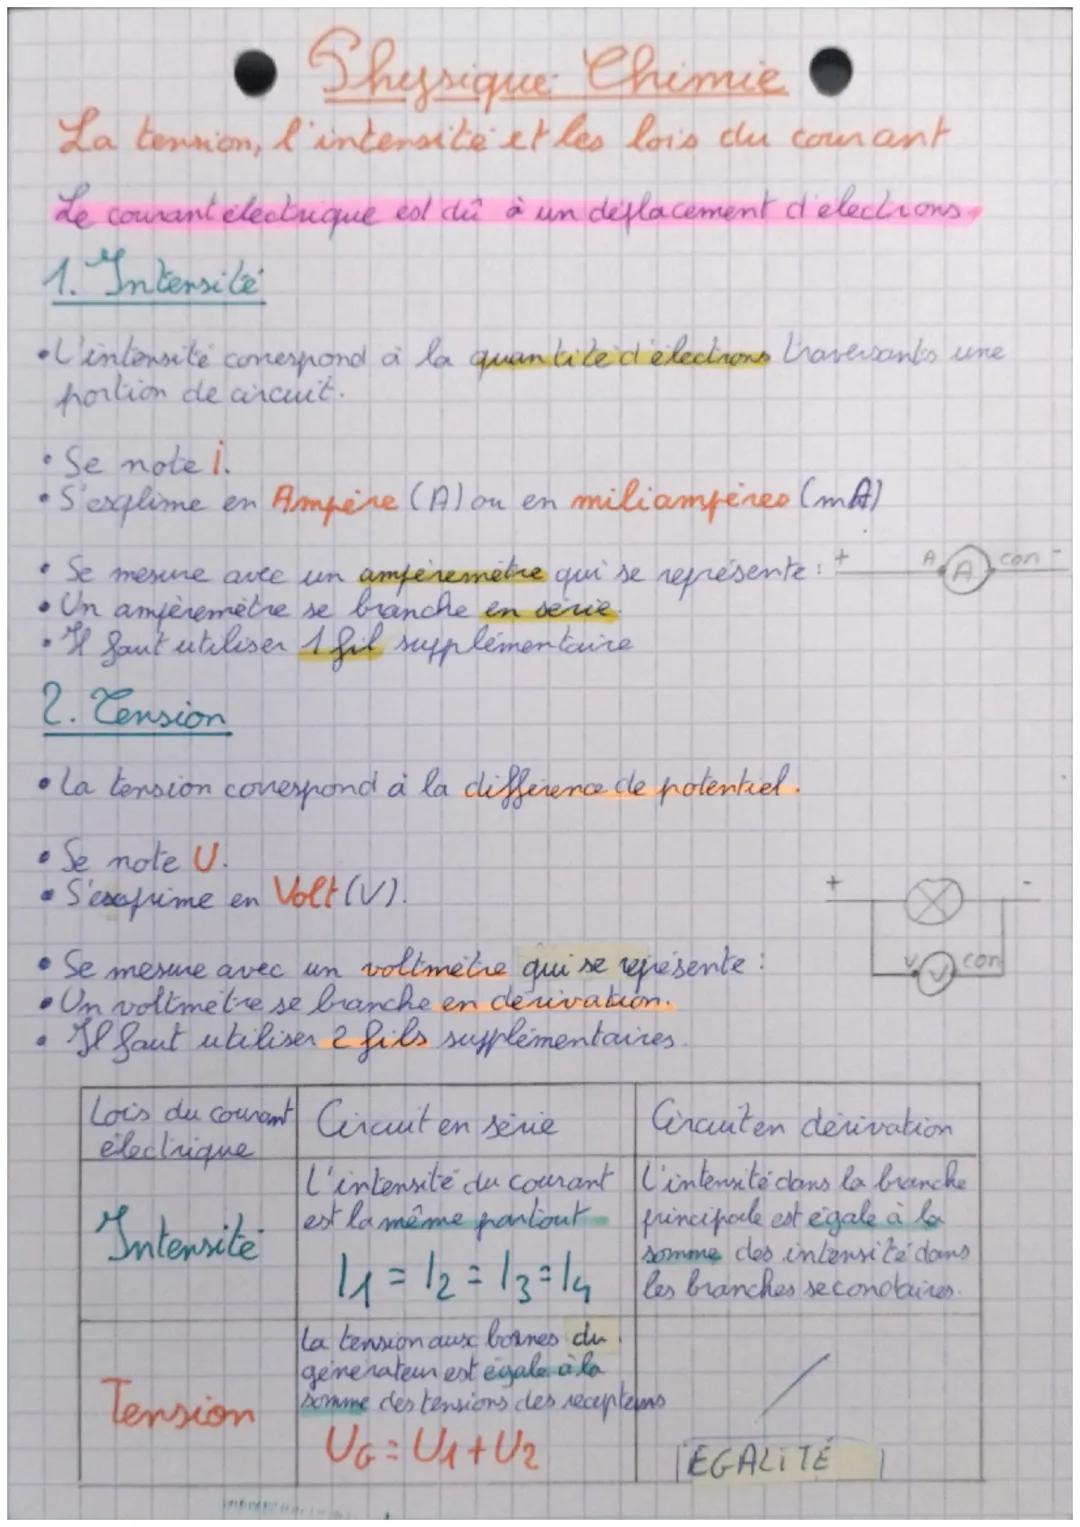 Physique Chimie
La tension, l'intensité et les lois du courant
Le courant électrique est dû à un déplacement d'électrons.
1. Intensité
• L'intensité correspond à la quantité d'électrons traversants une
portion de circuit.
• Se note i.
• S'explime en Ampère (A) ou en miliampères (mA)
• Se mesure avec un ampèremètre qui se représente : + A A con -
• Un ampèremètre se branche en série.
• Il faut utiliser 1 fil supplémentaire
2. Tension
• La tension correspond à la différence de potentiel.
• Se note U.
• S'exprime en Volt (V).
+ -
• Se mesure avec un voltmètre qui se représente : V V con
• Un voltmètre se branche en dérivation.
• Il faut utiliser 2 fils supplémentaires.
Lois du courant
électrique
Circuit en série
Circuit en dérivation
Intensité
L'intensité du courant
est la même partout
I1 = I2 = I3 = I4
L'intensité dans la branche
principale est égale à la
somme des intensité dans
les branches secondaires.
Tension
La tension aux bornes du
générateur est égale à la
somme des tensions des recepteurs
UG = U1 + U2
EGALITÉ